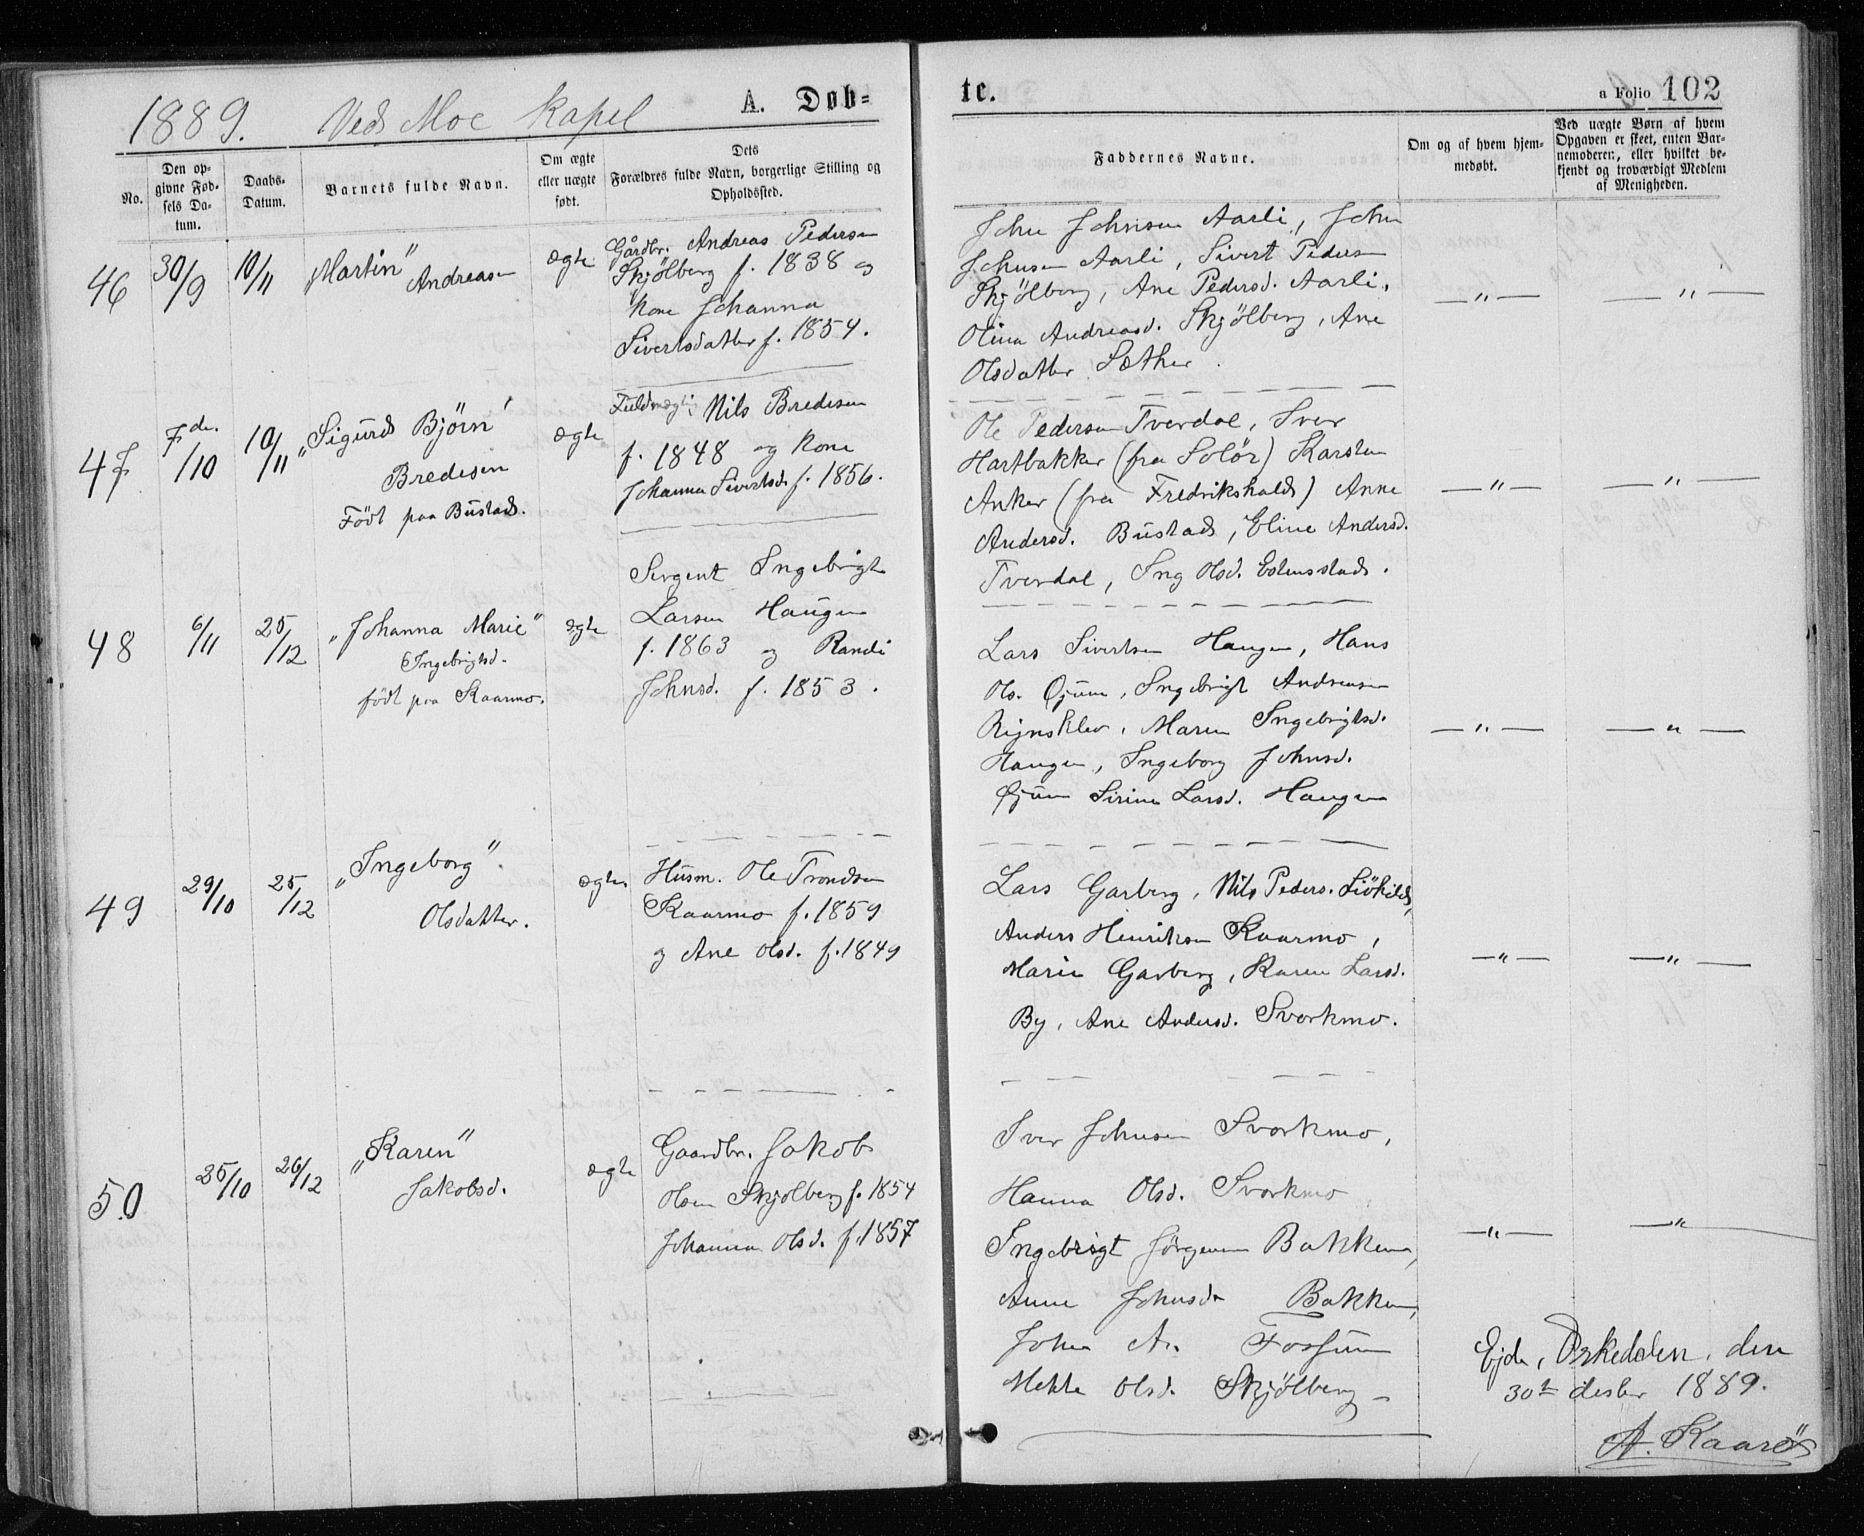 1889. Ved Moe Kapel
A. Døb=
te.
a Folio 102
No.
Den op-
givne Fød-
sels Da-
tum.
Daabs-
Datum.
Barnets fulde Navn.
Om ægte
eller uægte
født.
Dets
Forældres fulde Navn, borgerlige Stilling og
Opholdssted.
Faddernes Navne.
Om og af hvem hjem-
medøbt.
Ved uægte Børn af hvem
Opgaven er skeet, enten Bar-
nemoderen, eller hvilket be-
kjendt og troværdigt Medlem
af Menigheden.
46
30/9
10/11
„Martin"
Andreasen
ægte
Gårdbr. Andreas Pedersen
Skjölberg f. 1838 og
Kone Johanna
Sivertsdatter f. 1854.
John Johnsen Aarli, John
Johnsen Aarli, Sivert Pedersen
Skjölberg, Ane Pedersd. Aarli,
Olina Andreasd. Skjölberg, Ane
Olsdatter Sæther.
— " —
— " —
47
7de/10
10/11
„Sigurd Bjørn"
Bredesen
Født paa Bustad.
ægte
Fuldmægtig Nils Bredesen
f. 1848 og Kone
Johanna Sivertsd. f. 1856.
Ole Pedersen Tverdal, Iver
Hartbakker (fra Solör) Karsten
Anker (fra Fredrikshald) Anne
Andersd. Bustad, Eline Andersd.
Tverdal, Ing Olsd.
— " —
— " —
48
6/11
25/12
„Johanna Marie"
Ingebrigtsd.
født paa Kaarmo.
ægte
Sergent Ingebrigt
Larsen Haugen
f. 1863 og Randi
Johnsd. f. 1853.
Lars Sivertsen Haugen, Hans
Ols. Øjum, Ingebrigt Andreasen
Rignsklev, Maren Ingebrigtsd.
Haugen, Ingeborg Johnsd.
Øjum Sirine Larsd. Haugen
— " —
— " —
49
29/10
25/12
„Ingeborg"
Olsdatter.
ægte
Husm. Ole Trondsen
Kaarmo f. 1859
og Ane Olsd. f. 1849
Lars Garberg, Nils Peders.
Anders Henriksen Kaarmo,
Marie Garberg, Karen Larsd.
By, Ane Andersd. Svorkmo.
— " —
— " —
50
25/10
26/12
„Karen"
Jakobsd.
ægte
Gaardbr. Jakob
Olsen Skjølberg f. 1854
Johanna Olsd. f. 1857
Iver Johnsen Svorkmo,
Hanna Olsd. Svorkmo
Ingebrigt Jörgensen Bakken,
Anne Johnsd. Bakken,
John A. Fossum
Mekke Olsd. Skjölberg —
— " —
— "
Ejde, Orkedalen, den
30te desbr 1889.
A. Kaarø